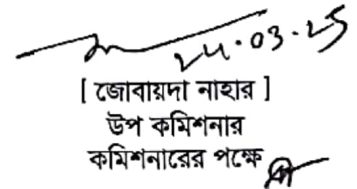 ২৪.০৩.২৫
[ জোবায়দা নাহার ]
উপ কমিশনার
কমিশনারের পক্ষে